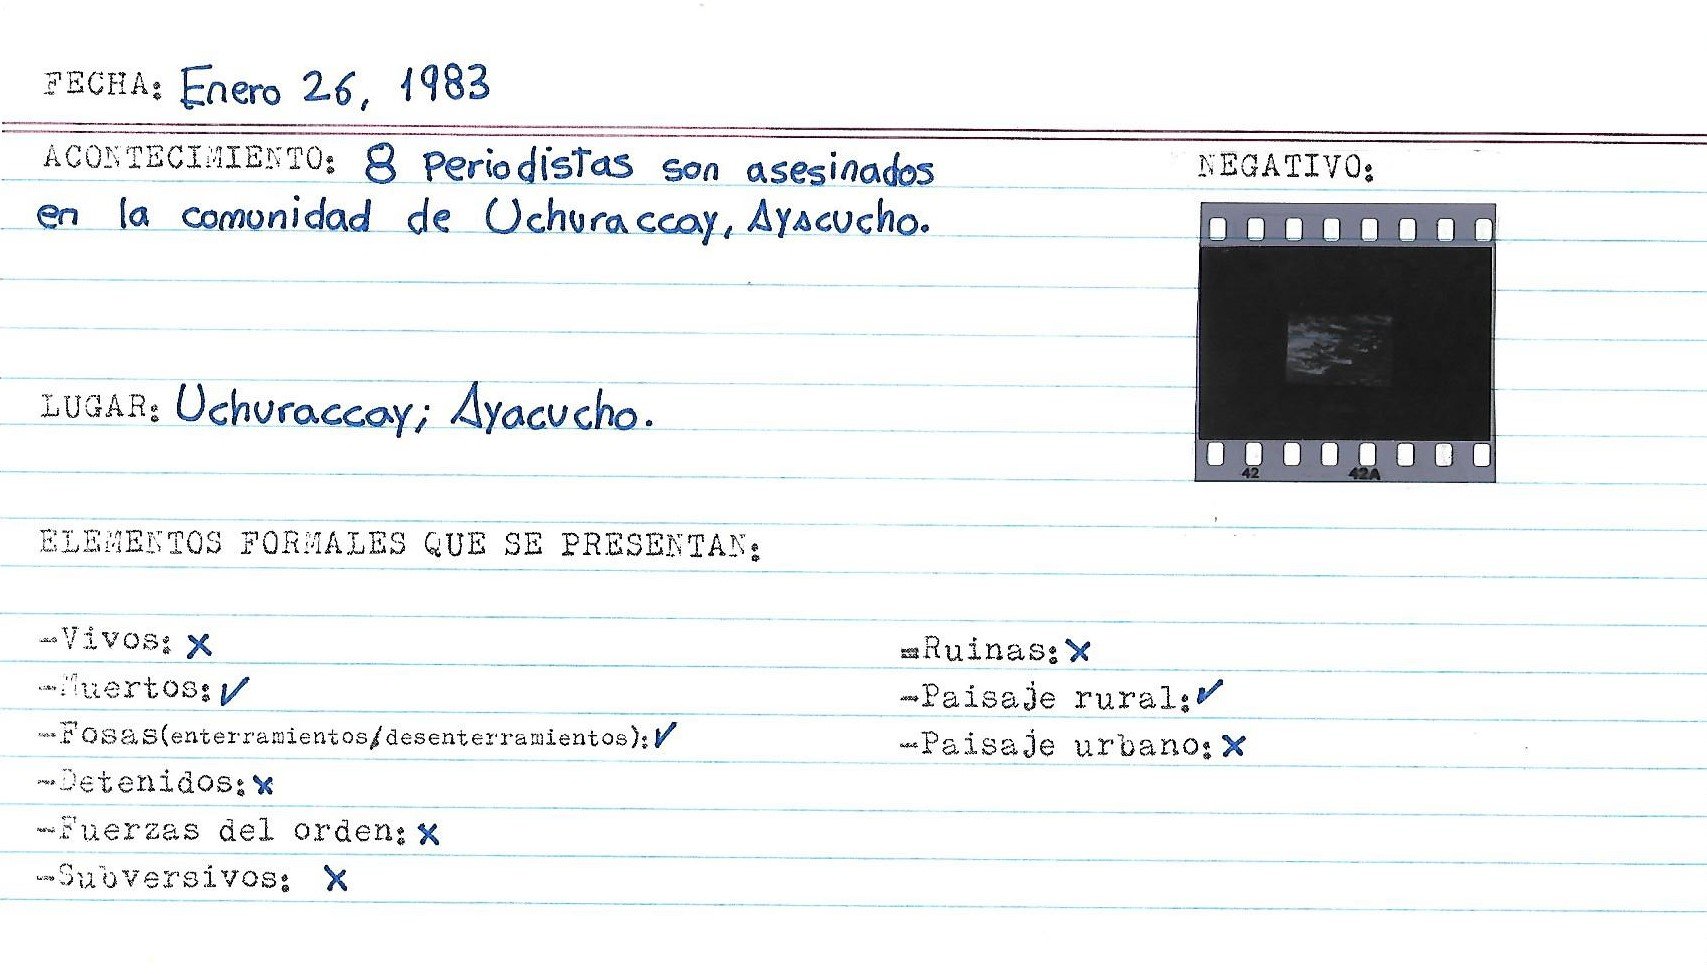 FECHA: Enero 26, 1983
ACONTECIMIENTO: 8 periodistas son asesinados
en la comunidad de Uchuraccay, Ayacucho.
NEGATIVO:
42 42A
LUGAR: Uchuraccay; Ayacucho.
ELEMENTOS FORMALES QUE SE PRESENTAN:
-Vivos: x
-Muertos: ✓
-Fosas(enterramientos/desenterramientos): ✓
-Detenidos: x
-Fuerzas del orden: x
-Subversivos: x
-Ruinas: x
-Paisaje rural: ✓
-Paisaje urbano: x